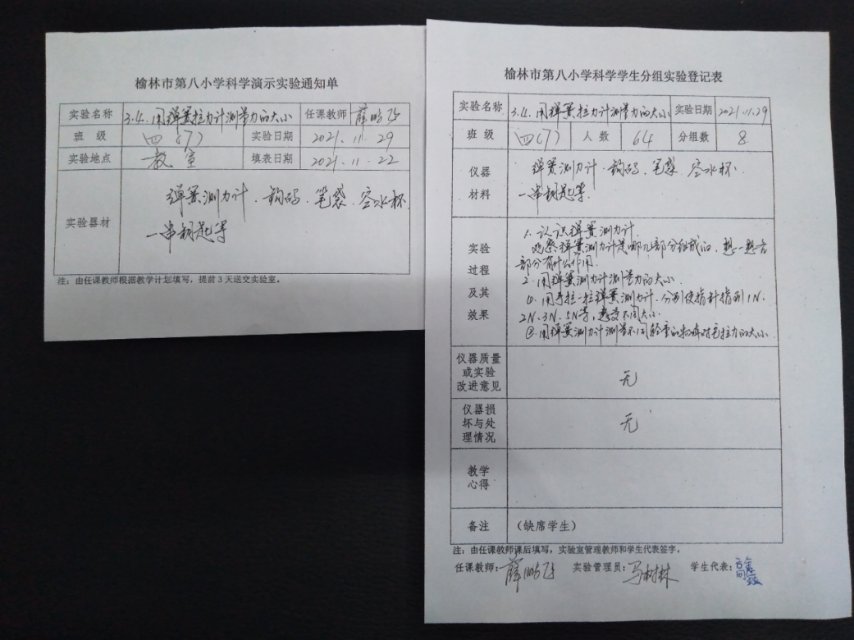 榆林市第八小学科学演示实验通知单
实验名称 3.4.用弹簧拉力计测量力的大小 任课教师 薛
班 级 四(7) 实验日期 2021.11.29
实验地点 教室 填表日期 2021.11.22
实验器材 弹簧测力计、钩码、笔袋、空水杯、
一串钥匙等
注：由任课教师根据教学计划填写，提前3天送交实验室。
榆林市第八小学科学学生分组实验登记表
实验名称 3.4.用弹簧拉力计测量力的大小 实验日期 2021.11.29
班 级 四(7) 人 数 64 分组数 8
仪器 弹簧测力计、钩码、笔袋、空水杯、
材料 一串钥匙等.
实验过程及其效果
1、认识弹簧测力计.
观察弹簧测力计是哪几部分组成的，想一想各
部分有什么作用.
2、用弹簧测力计测量力的大小.
①用手拉一拉弹簧测力计，分别使指针指到1N、
2N、3N、5N等，感受不同大小.
②用弹簧测力计测量不同轻重的物体对它拉力的大小.
仪器质量
或实验
改进意见
无
仪器损
坏与处
理情况
无
教学
心得
备注 （缺席学生）
注：由任课教师课后填写，实验室管理教师和学生代表签字。
任课教师： 薛 实验管理员： 马树林 学生代表：